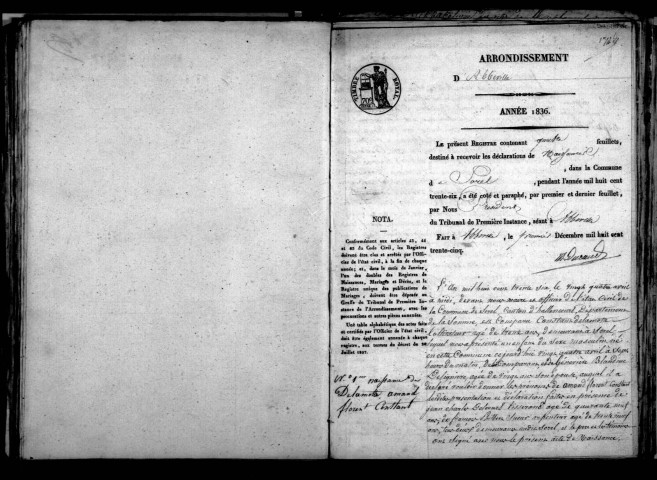 ARRONDISSEMENT
D'Abbeville
ANNÉE 1836.
Le présent REGISTRE contenant quatre feuillets,
destiné à recevoir les déclarations de Naissances
, dans la Commune
d e Sorel , pendant l'année mil huit cent
trente-six, a été coté et paraphé, par premier et dernier feuillet,
par Nous Président
du Tribunal de Première Instance, séant à Abbeville
FAIT à Abbeville, le premier Décembre mil huit cent
trente-cinq.
TIMBRE ROYAL
NOTA.
Conformément aux articles 43, 44
et 63 du Code Civil, les Registres
doivent être clos et arrêtés par l'Offi-
cier de l'état civil, à la fin de chaque
année; et, dans le mois de Janvier,
l'un des doubles des Registres de
Naissances, Mariages et Décès, et le
Registre unique des publications de
Mariages, doivent être déposés au
Greffe du Tribunal de Première Ins-
tance de l'Arrondissement, avec les
procurations et autres pièces annexées.
Une table alphabétique des actes faits
et certifiés par l'Officier de l'état civil,
doit être également annexée à chaque
registre, aux termes du décret du 20
Juillet 1807.
N° 1er naissance de
Delamotte amand
florent Constant
L'An mil huit cent trente six, le vingt quatre avril
à midi, devant nous maire et officier de l'état civil de
la Commune de Sorel, Canton d'hallencourt, Département
de la Somme, est Comparu Constant delamotte
agé de trente ans, demeurant à Sorel,
lequel nous a présenté un enfant du sexe masculin né
en cette Commune cejourd'hui vingt quatre avril à sept
heures du matin, de lui Comparant, et de
agée de vingt ans son épouse, auquel il a
déclaré vouloir donner les prénoms de amand florent Constant
lesdites présentation et déclaration faites en présence de
jean charle agé de quarante neuf
ans, de agé de trente neuf
ans, tous deux demeurant audit Sorel, et le père et témoins
ont signé avec nous le présent acte de Naissance.